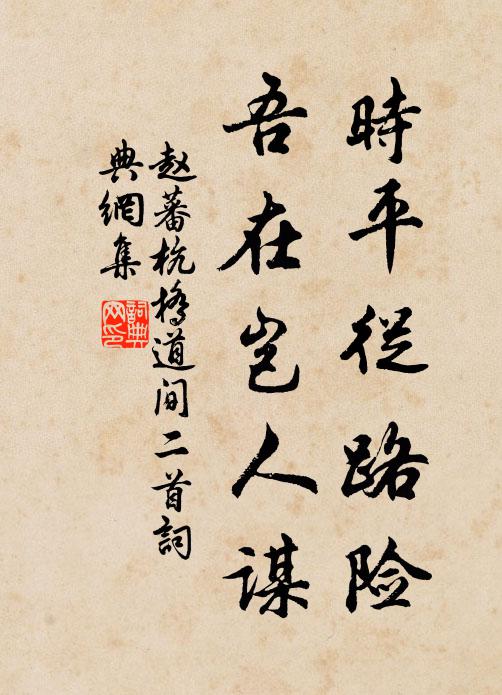 時平從路险
吾在岂人謀
赵蕃杭橋道间二首詞
典網集
詞典
网印